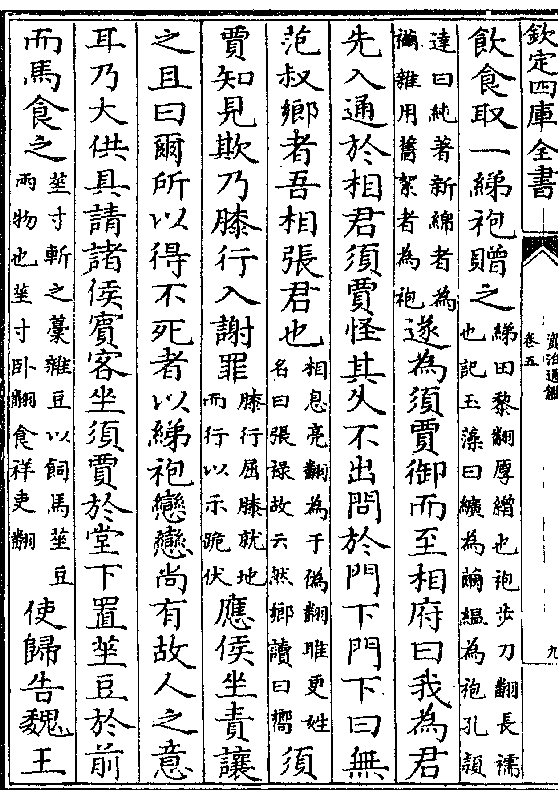 欽定四庫全書
資治通鑑
卷五
九
飲食取一綈袍贈之綈田黎翻厚繒也袍步刀翻長襦也記玉藻曰纊為繭縕為袍孔頴
達曰純著新綿者為襺雜用舊絮者為袍遂為須賈御而至相府曰我為君
先入通於相君須賈怪其久不出問於門下門下曰無
范叔鄉者吾相張君也相息亮翻為于偽翻雎更姓名曰張祿故云然鄉讀曰嚮須
賈知見欺乃膝行入謝罪膝行屈膝就地而行以示跪伏應侯坐責讓
之且曰爾所以得不死者以綈袍戀戀尚有故人之意
耳乃大供具請諸侯賓客坐須賈於堂下置莝豆於前
而馬食之莝寸斬之藁雜豆以飼馬莝豆兩物也莝寸卧翻食祥吏翻使歸告魏王